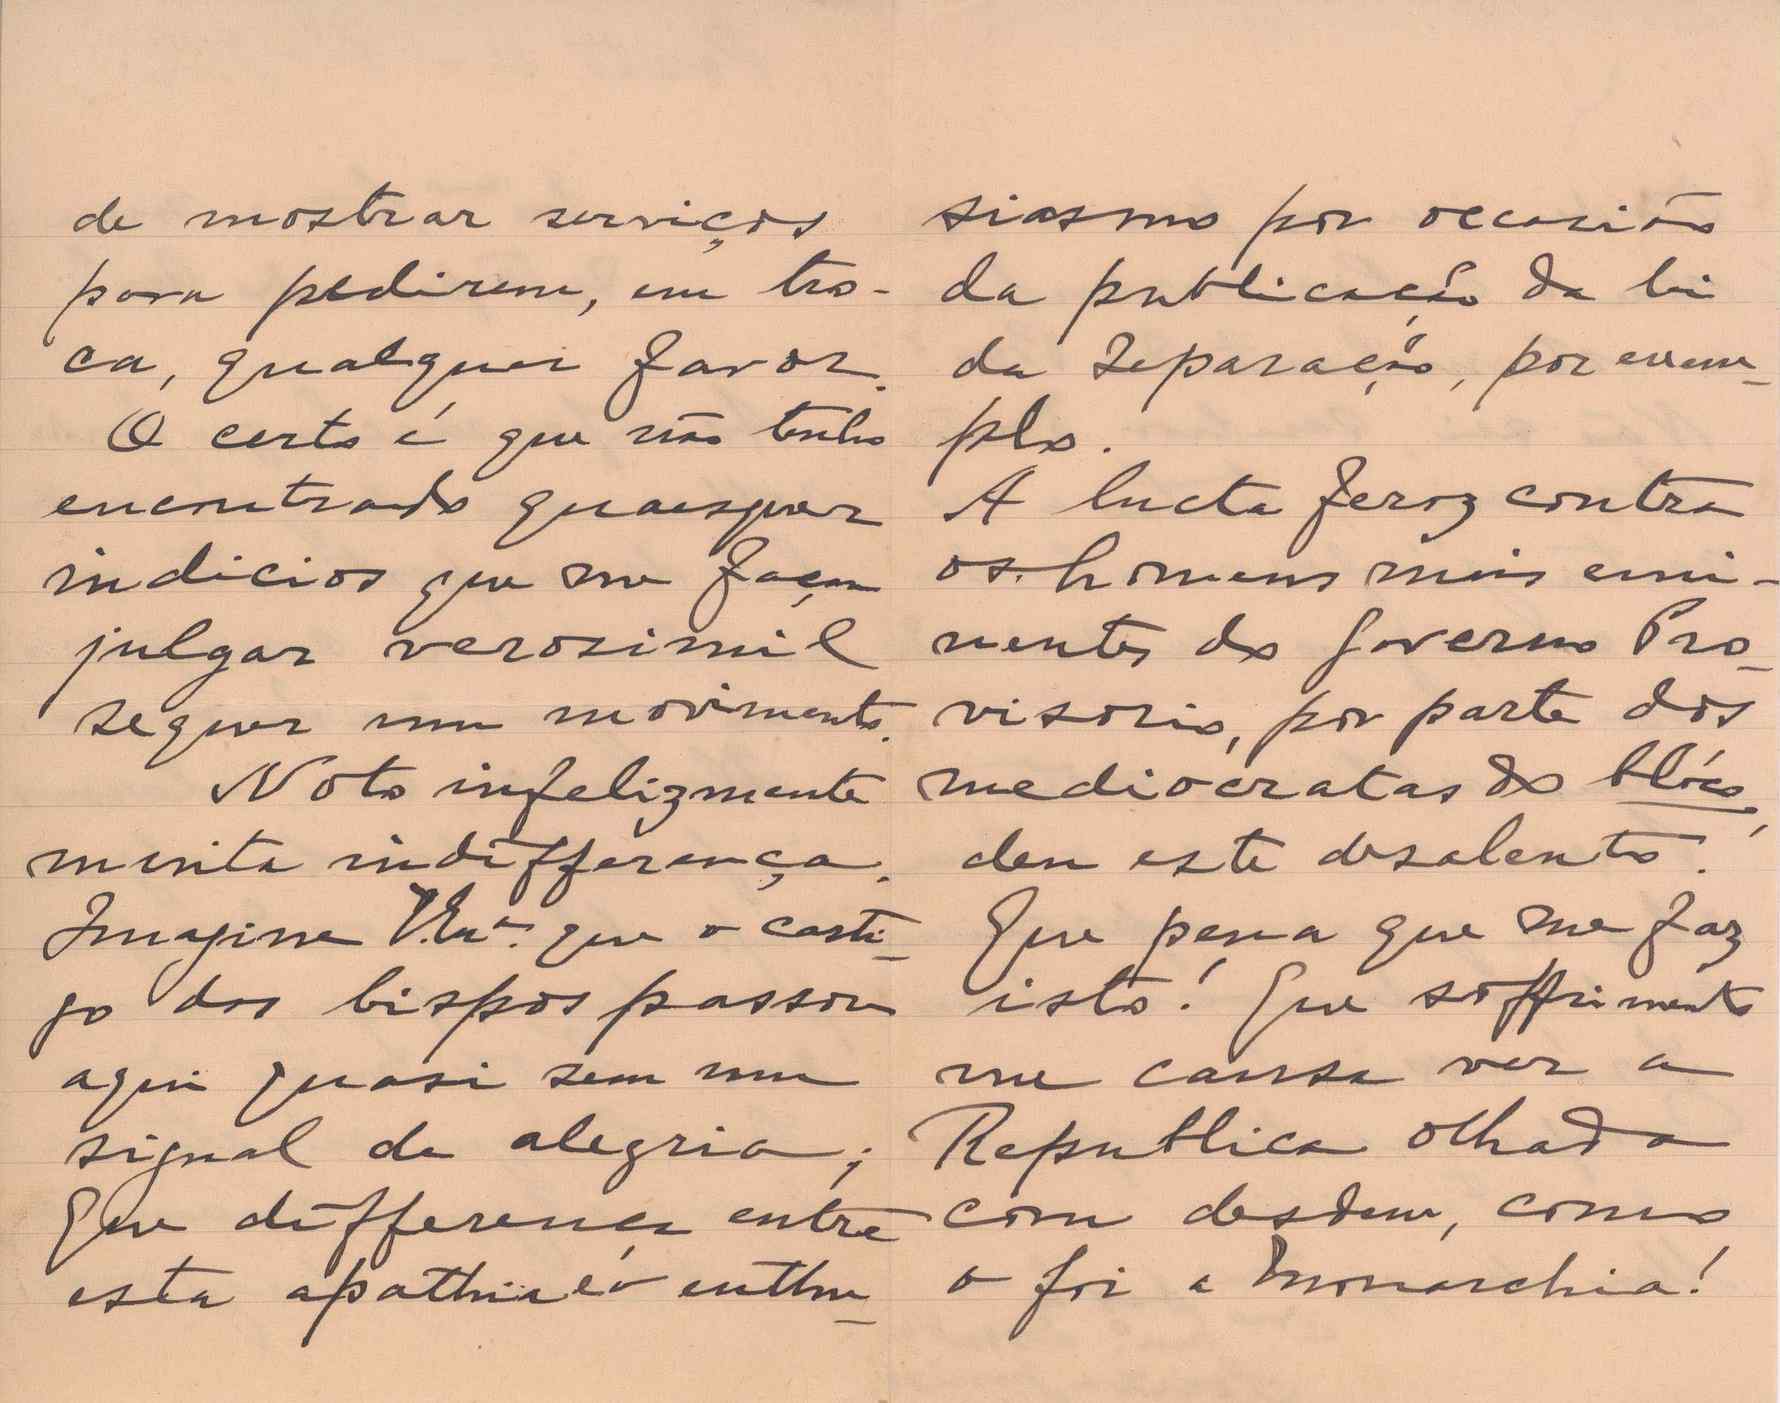 de mostrar serviços
para pedirem, em tro-
ca, qualquer favor.
O certo é que não tenho
encontrado quaesquer
indicios que me façam
julgar verosimil
sequer um movimento.
Noto infelizmente
muita indifferença.
Imagine V. Exª. que o casti-
go dos bispos passou
aqui quasi sem um
signal de alegria;
Que differença entre
esta apathia e o enthu-
siasmo por occasião
da publicação da lei
da Separação, por exem-
plo.
A lucta feroz contra
os homens mais emi-
nentes do Governo Pro-
visorio, por parte dos
mediocratas do blóco,
deu este desalento.
Que pena que me faz
isto! Que soffrimento
me causa ver a
Republica olhada
com desdem, como
o foi a Monarchia!